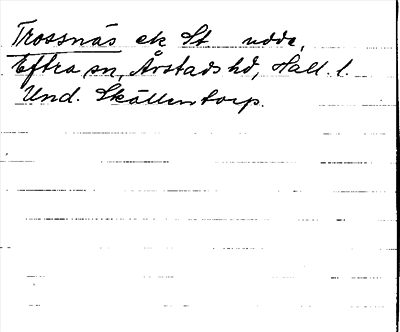 Trossnäs ek St udde,
Eftra sn, Årstads hd, Hall. l.
Und. Skällentorp.